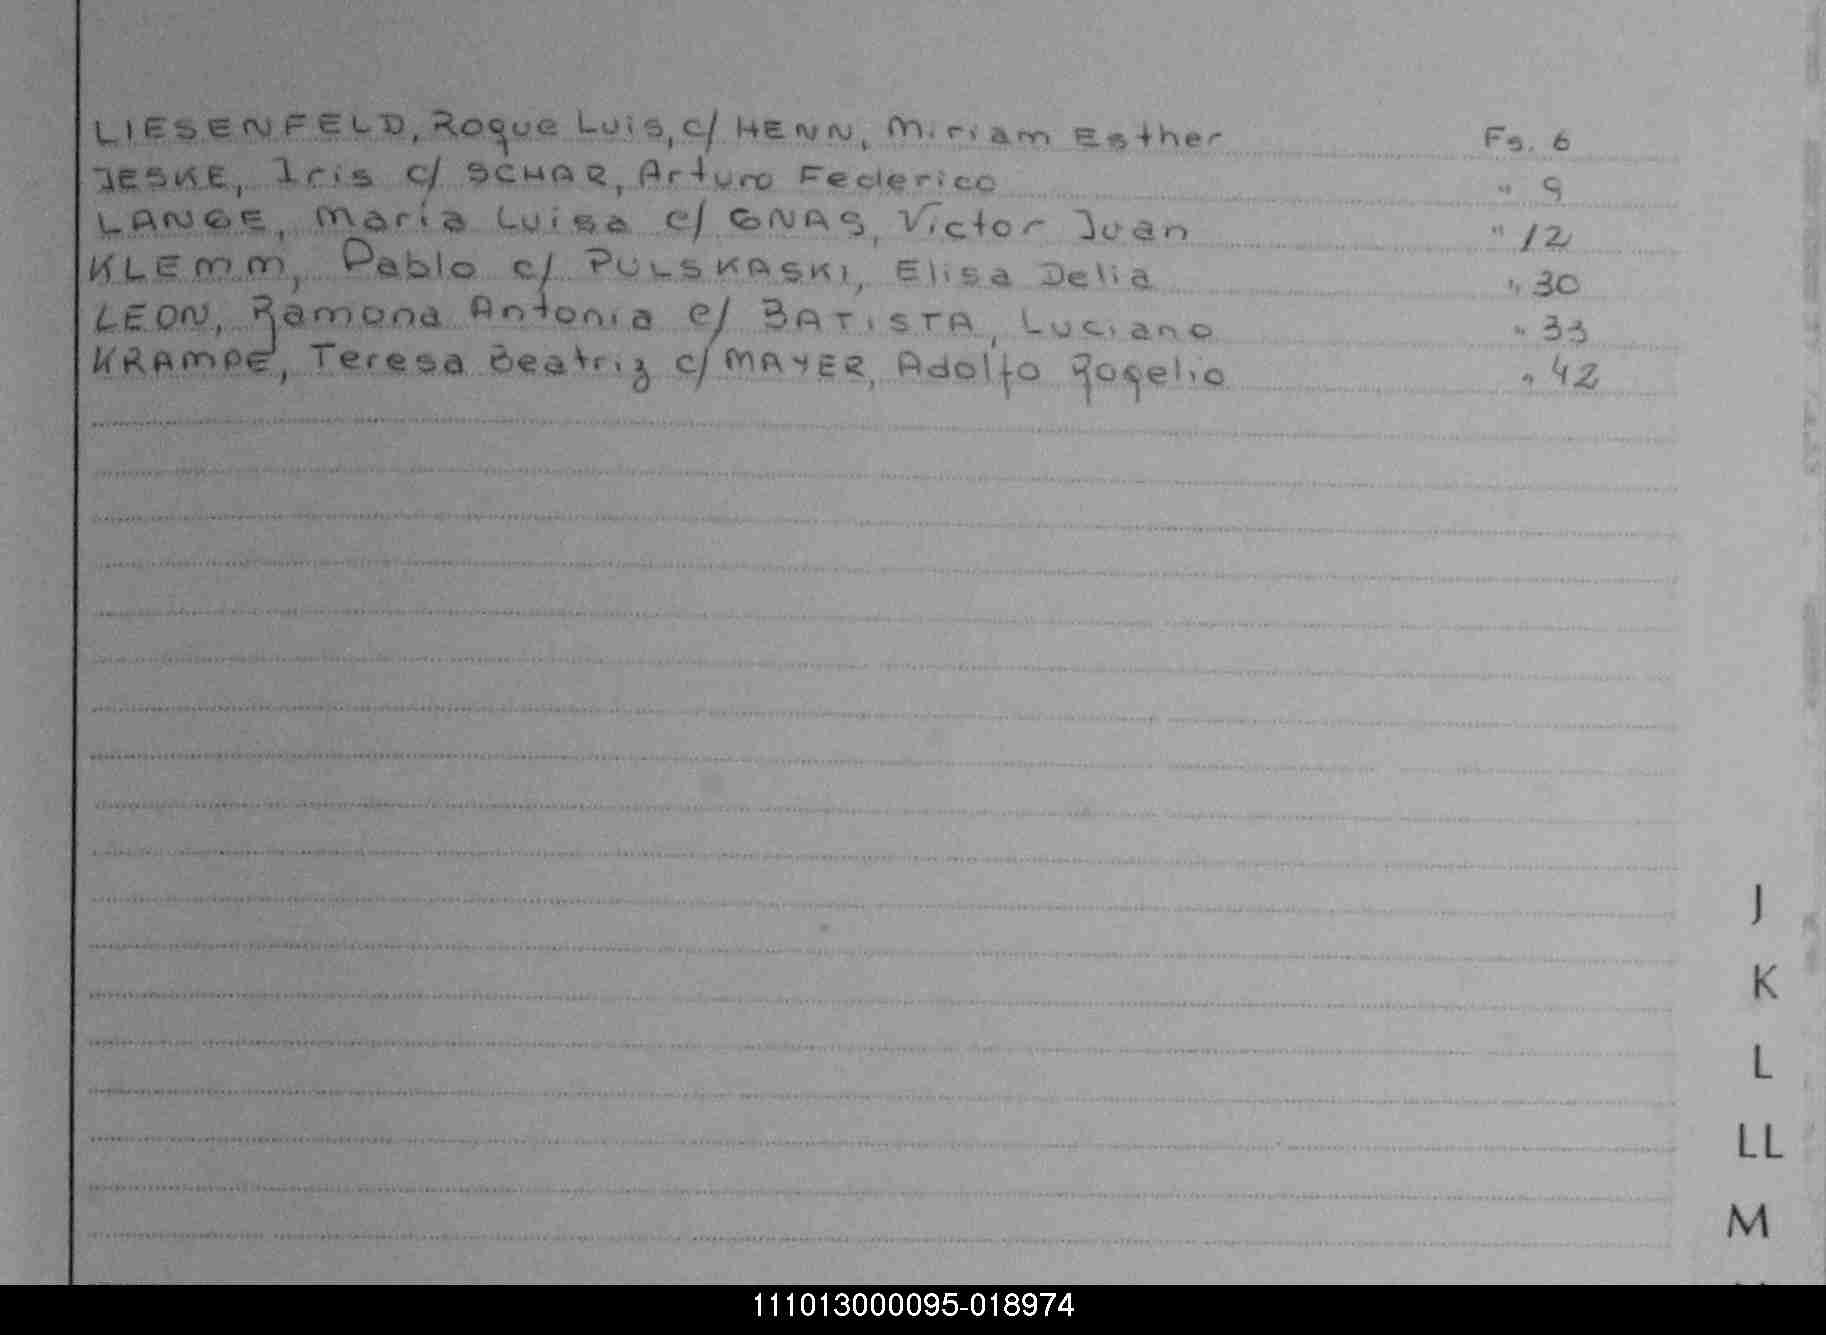 LIESENFELD, Roque Luis, c/ HENN, Miriam Esther Fs. 6
JESKE, Iris c/ SCHAR, Arturo Federico " 9
LANGE, María Luisa c/ GNAS, Víctor Juan " 12
KLEMM, Pablo c/ PULSKASKI, Elisa Delia " 30
LEON, Ramona Antonia c/ BATISTA, Luciano " 33
KRAMPE, Teresa Beatriz c/ MAYER, Adolfo Rogelio " 42
J
K
L
LL
M
111013000095-018974